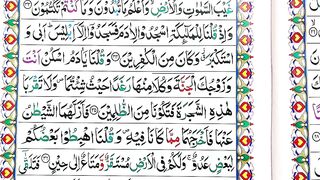 غَيْبَ السَّمٰوٰتِ وَالْاَرْضِ وَاَعْلَمُ مَا تُبْدُوْنَ وَمَا كُنْتُمْ تَكْتُمُوْنَ
وَاِذْ قُلْنَا لِلْمَلٰٓئِكَةِ اسْجُدُوْا لِاٰدَمَ فَسَجَدُوْٓا اِلَّآ اِبْلِيْسَ اَبٰى
وَاسْتَكْبَرَ وَكَانَ مِنَ الْكٰفِرِيْنَ وَقُلْنَا يٰٓاٰدَمُ اسْكُنْ اَنْتَ
وَزَوْجُكَ الْجَنَّةَ وَكُلَا مِنْهَا رَغَدًا حَيْثُ شِئْتُمَا وَلَا تَقْرَبَا
هٰذِهِ الشَّجَرَةَ فَتَكُوْنَا مِنَ الظّٰلِمِيْنَ فَاَزَلَّهُمَا الشَّيْطٰنُ
عَنْهَا فَاَخْرَجَهُمَا مِمَّا كَانَا فِيْهِ وَقُلْنَا اهْبِطُوْا بَعْضُكُمْ
لِبَعْضٍ عَدُوٌّ وَلَكُمْ فِى الْاَرْضِ مُسْتَقَرٌّ وَّمَتَاعٌ اِلٰى حِيْنٍ فَتَلَقّٰٓى